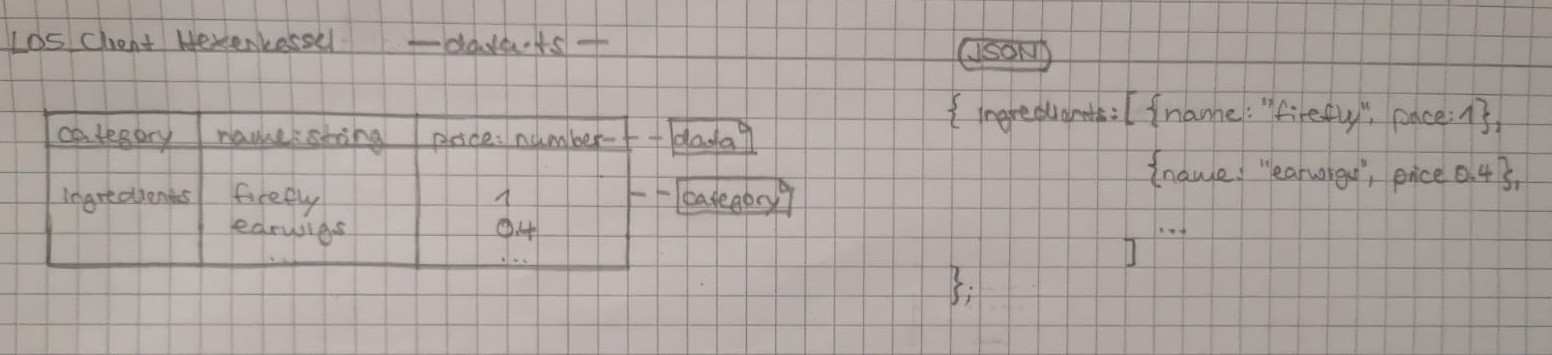 L05 Client Hexenkessel — data.ts —
category name: string price: number data
ingredients firefly 1 category
earwigs 0.4
... ...
JSON
{ ingredients: [ {name: "firefly", price: 1},
{name: "earwigs", price 0.4},
...
]
};